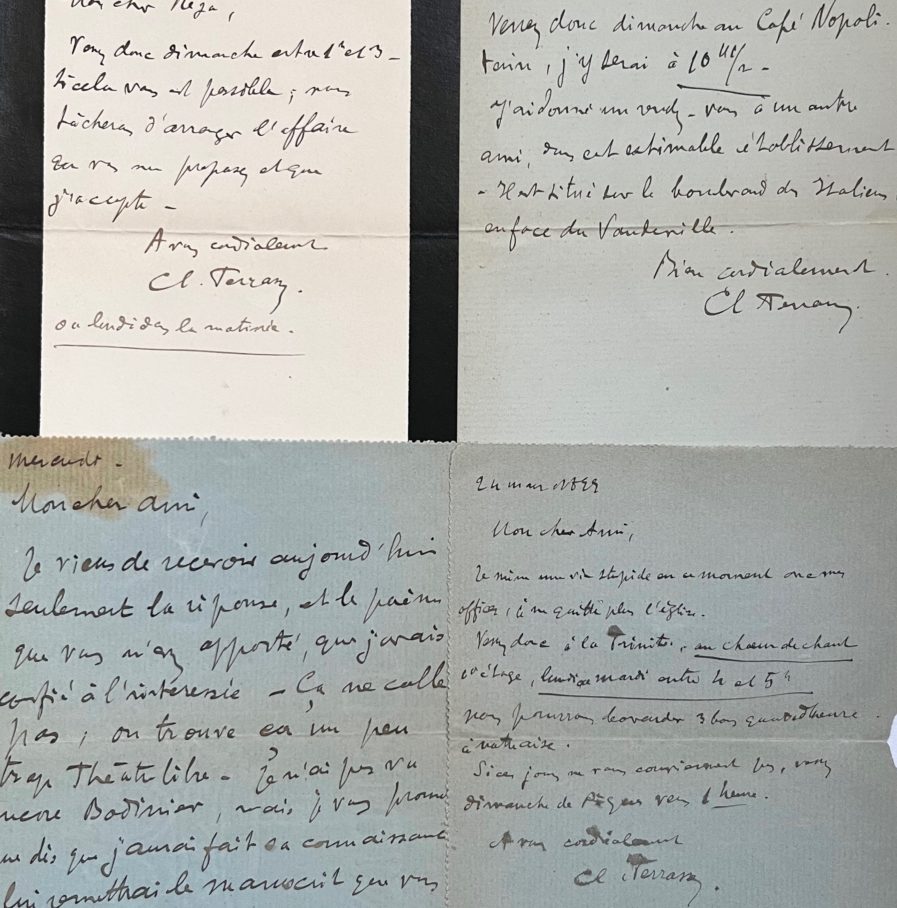 Mon cher
Venez donc dimanche entre 1h et 3 -
si cela vous est possible ; nous
tâcherons d'arranger l'affaire
que vous me proposez et que
j'accepte -
A vous cordialement
Cl. Terrasse.
ou lundi dans la matinée.
Venez donc dimanche au Café Napoli-
tain, j'y serai à 10 h 1/2 -
J'ai donné un rendez-vous à un autre
ami, dans cet estimable établissement
- Il est situé sur le boulevard des Italiens
en face du Vaudeville.
Bien cordialement.
Cl Terrasse.
mercredi -
Mon cher ami,
Je viens de recevoir aujourd'hui
seulement la réponse, et le poème
que vous m'avez apporté, que j'avais
confié à l'intéressée - Ça ne colle
pas ; on trouve ça un peu
trop Théâtre libre - Je n'ai pas vu
encore Bodinier, mais je vous promets
que dès que j'aurai fait sa connaissance
lui remettrai le manuscrit que vous
24 mars 1899
Mon cher Ami,
Je mène une vie stupide en ce moment avec mes
offices, je ne quitte plus l'église.
Venez donc à la Trinité, au chœur de chant
1er étage, lundi ou mardi entre 4 et 5h
nous pourrons bavarder 3 bons quarts d'heure
à notre aise.
Si ces jours ne vous conviennent pas, venez
dimanche de Pâques vers 1 heure.
A vous cordialement
Cl Terrasse.